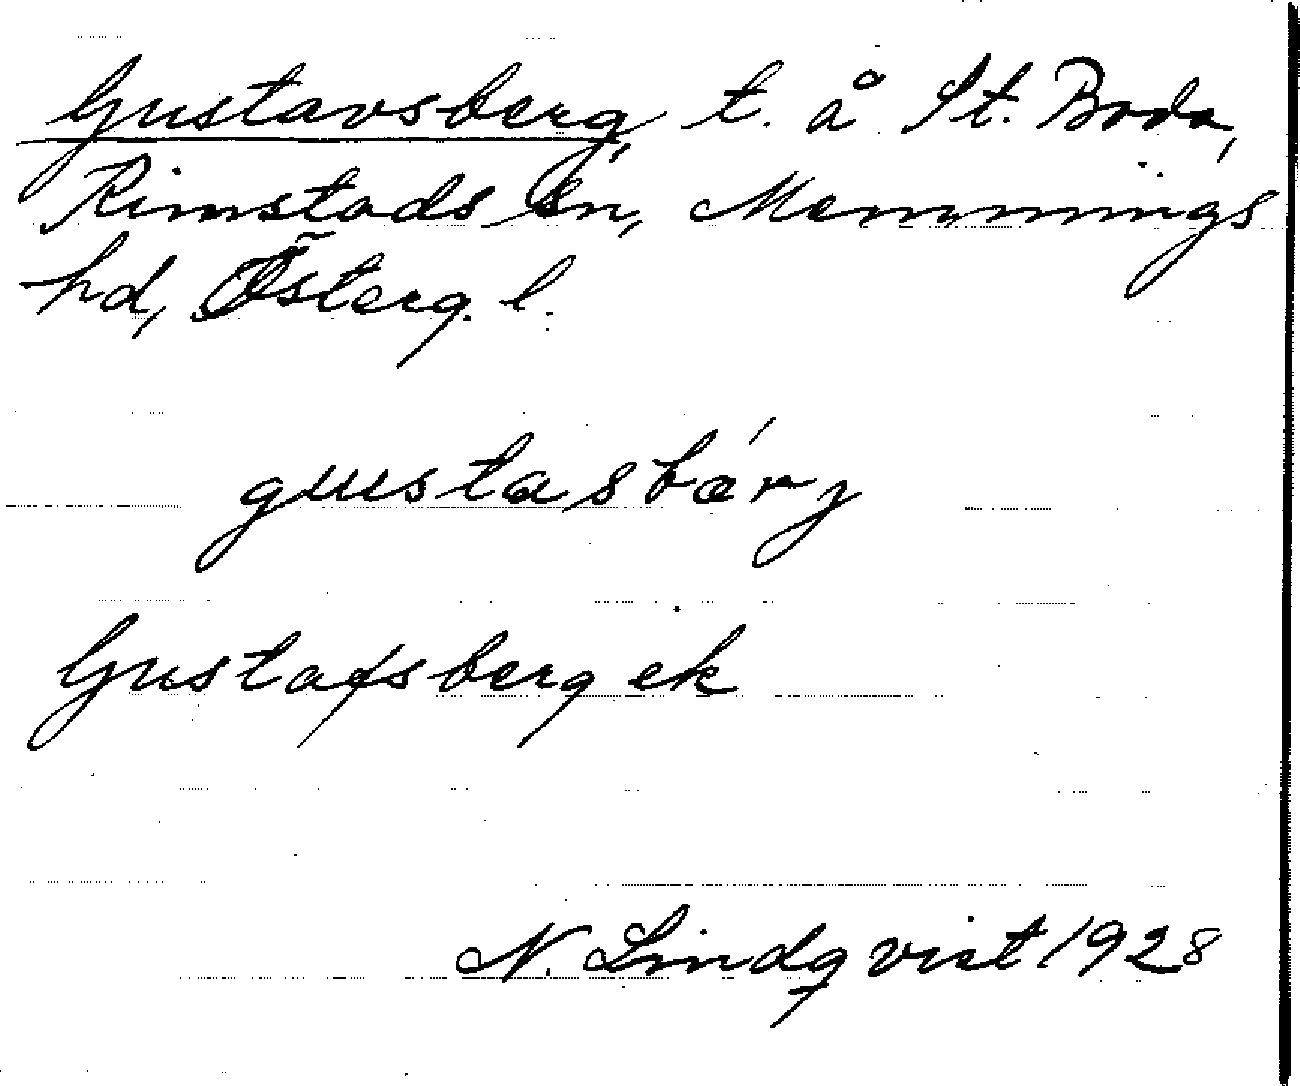 Gustavsberg, t. å St. Boda,
Rimstads sn, Memmings
hd, Österg. l.
gustasbærj́
Gustafsberg ek
N. Lindqvist 1928